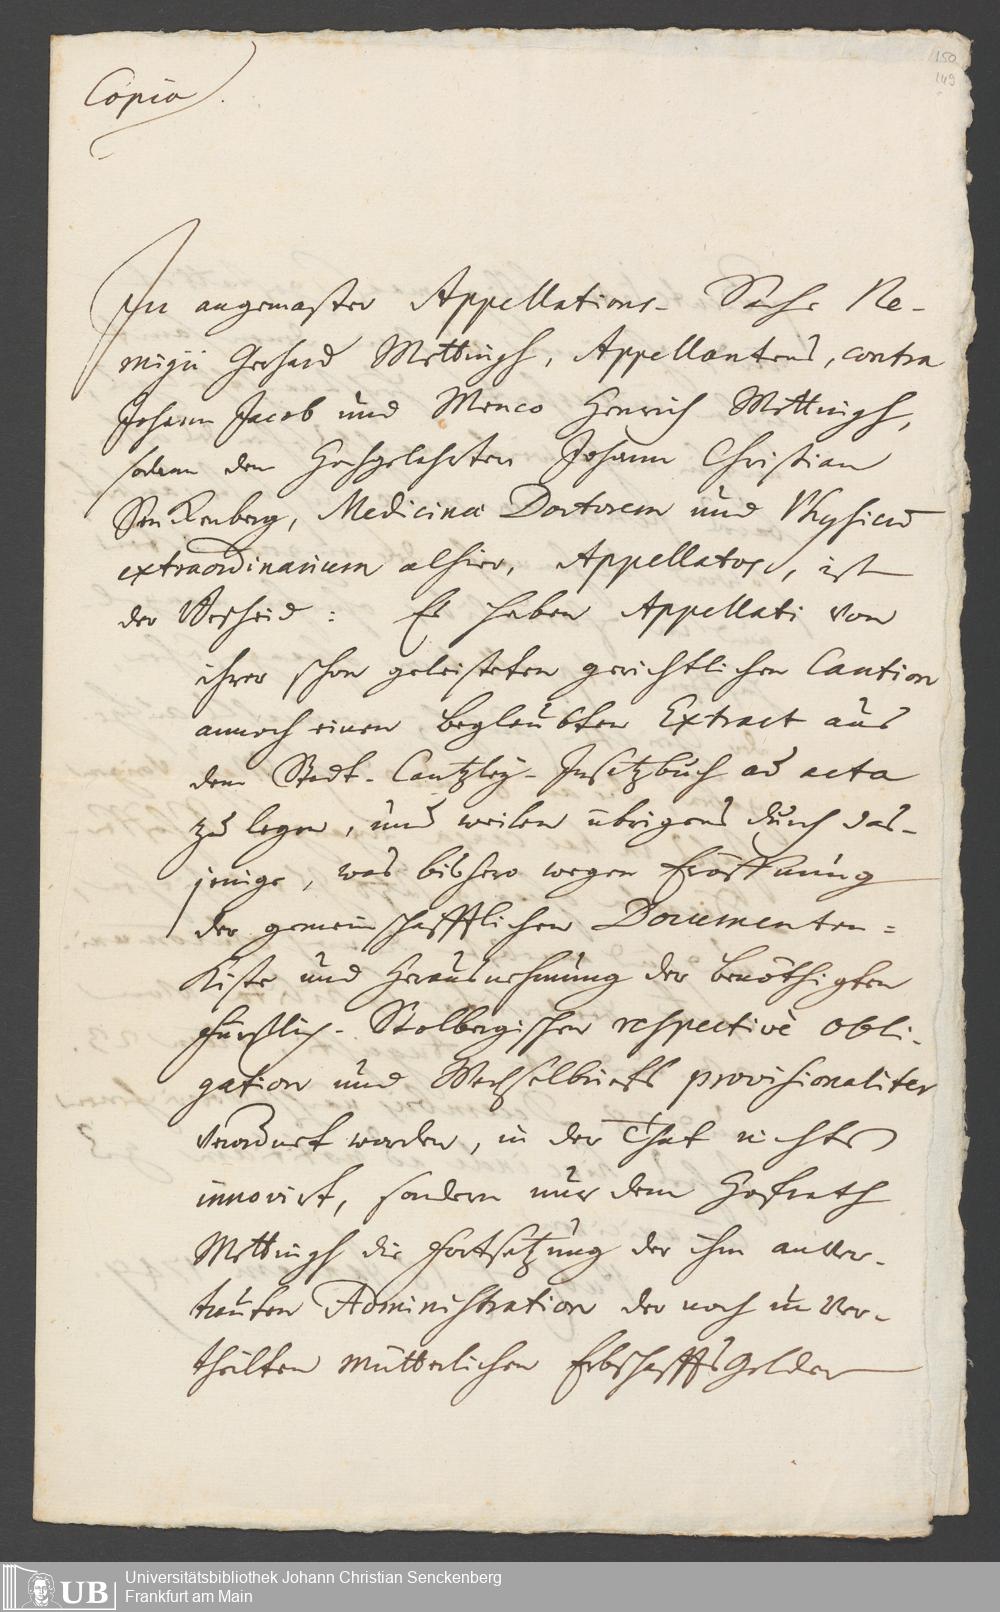 150
149
Copia
In angemaßter Appellations- Sache Re-
migii Gerhard Mettingh, Appellantens, contra
Johann Jacob und Menco Henrich Mettingh,
sodann den Hochgelahrten Johann Christian
Senckenberg, Medicinæ Doctorem und Physicum
extraordinarium alhier, Appellatos, ist
der Bescheid: Es haben Appellati von
ihrer schon geleisteten gerichtlichen Caution
annoch einen beglaubten Extract aus
dem Stadt-Cantzley-Insatzbuch ad acta
zu legen, und weilen übrigens durch das-
jenige, was bishero wegen Eröffnung
der gemeinschafftlichen Documenten=
Kiste und Herausnehmung der benöthigten
Fürstlich-Stolbergischen respective obli-
gation und Wechselbriefs provisionaliter
verordnet worden, in der That nichts
innovirt, sondern nur dem Hofrath
Mettingh die Fortsetzung der ihm anver-
trauten Administration der noch unver-
theilten mütterlichen Erbschaffts Gelder
UB
Universitätsbibliothek Johann Christian Senckenberg
Frankfurt am Main